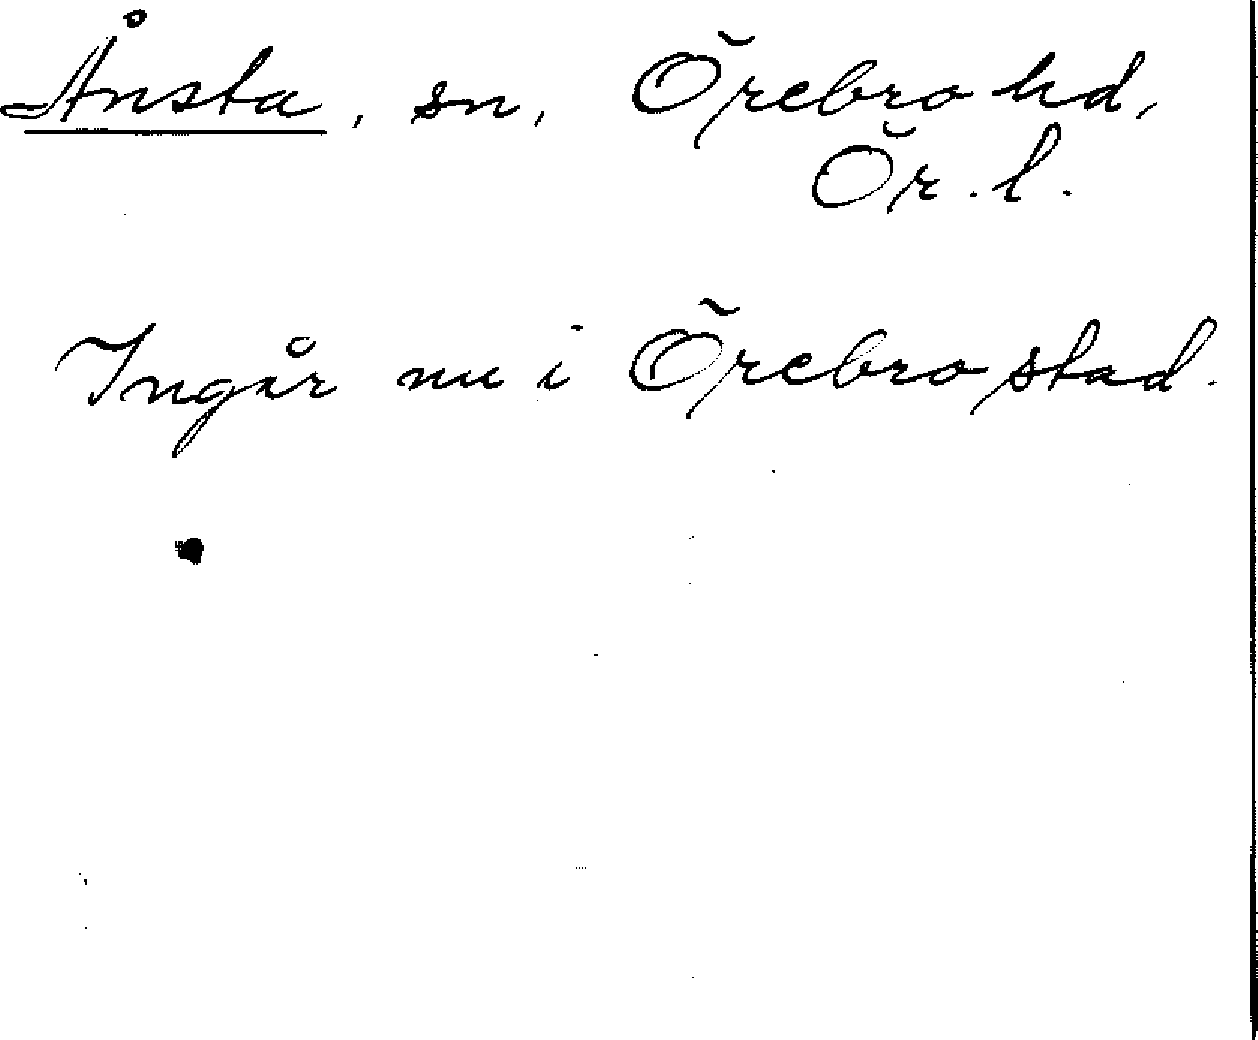 Ånsta, sn, Örebro hd,
Ör. l.
Ingår nu i Örebro stad.